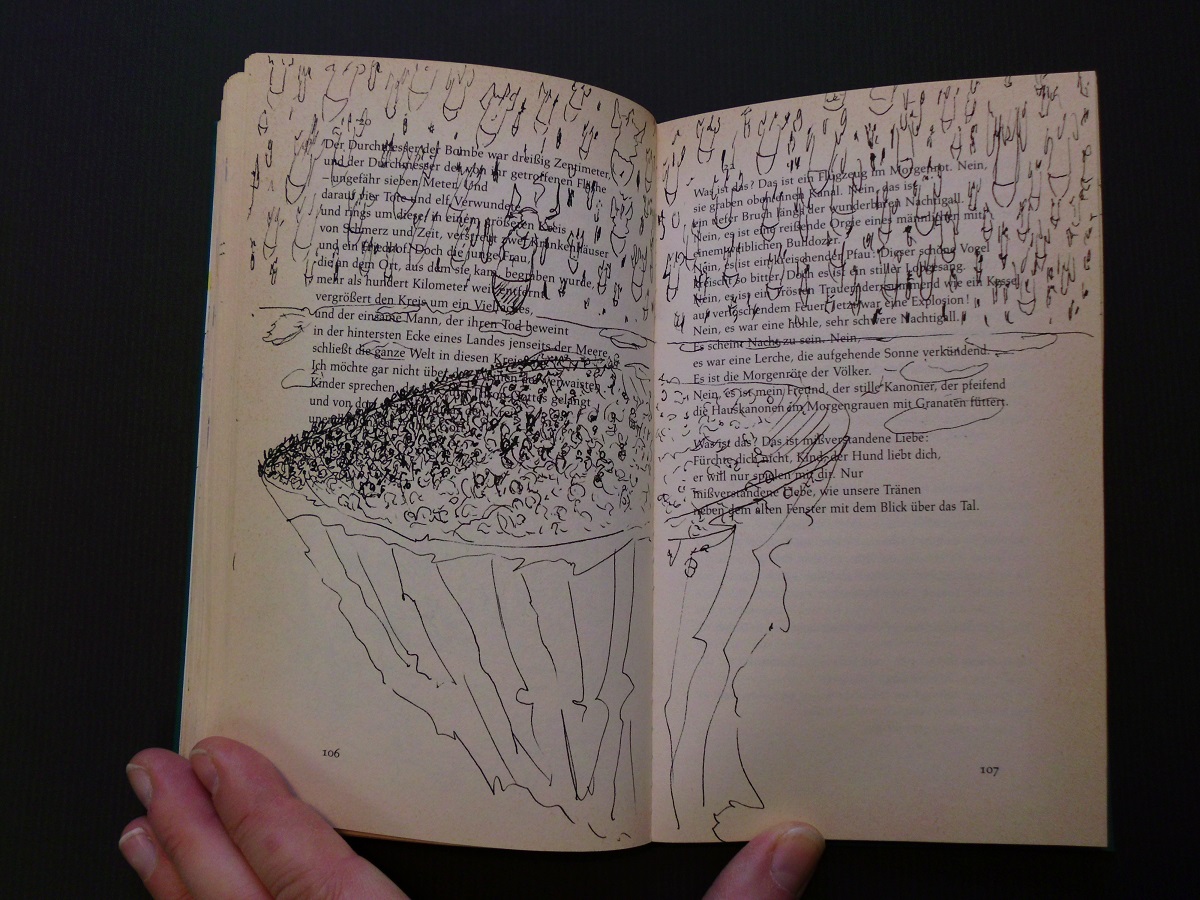 20
Der Durchmesser der Bombe war dreißig Zentimeter
und der Durchmesser der von ihr getroffenen Fläche
– ungefähr sieben Meter. Und
darauf vier Tote und elf Verwundete
und rings um diese, in einem größeren Kreis
von Schmerz und Zeit, verstreut zwei Krankenhäuser
und ein Friedhof. Doch die junge Frau,
die an dem Ort, aus dem sie kam, begraben wurde,
mehr als hundert Kilometer weit entfernt
vergrößert den Kreis um ein Vielfaches,
und der einsame Mann, der ihren Tod beweint
in der hintersten Ecke eines Landes jenseits der Meere,
schließt die ganze Welt in diesen Kreis
Ich möchte gar nicht über verwaisten
Kinder sprechen, Gottes gelangt
und von
106
Was ist das? Das ist ein Flugzeug im Morgenrot. Nein,
sie graben oben einen Kanal. Nein, das ist
ein tiefer Bruch längs der wunderbaren Nachtigall.
Nein, es ist eine reißende Orgie eines männlichen mit
einem weiblichen Bulldozer.
Nein, es ist ein kreischender Pfau. Dieser schöne Vogel
kreischt so bitter. Doch es ist ein stiller Lobgesang.
Nein, es ist ein Trösten Trauernder summend wie ein Kessel
auf verlöschendem Feuer. Jetzt war eine Explosion!
Nein, es war eine hohle, sehr schwere Nachtigall.
Es scheint Nacht zu sein. Nein,
es war eine Lerche, die aufgehende Sonne verkündend.
Es ist die Morgenröte der Völker.
Nein, es ist mein Freund, der stille Kanonier, der pfeifend
die Hauskanonen im Morgengrauen mit Granaten füttert.
Was ist das? Das ist mißverstandene Liebe:
Fürchte dich nicht, Kind, der Hund liebt dich,
er will nur spielen mit dir. Nur
mißverstandene Liebe, wie unsere Tränen
neben dem alten Fenster mit dem Blick über das Tal.
107